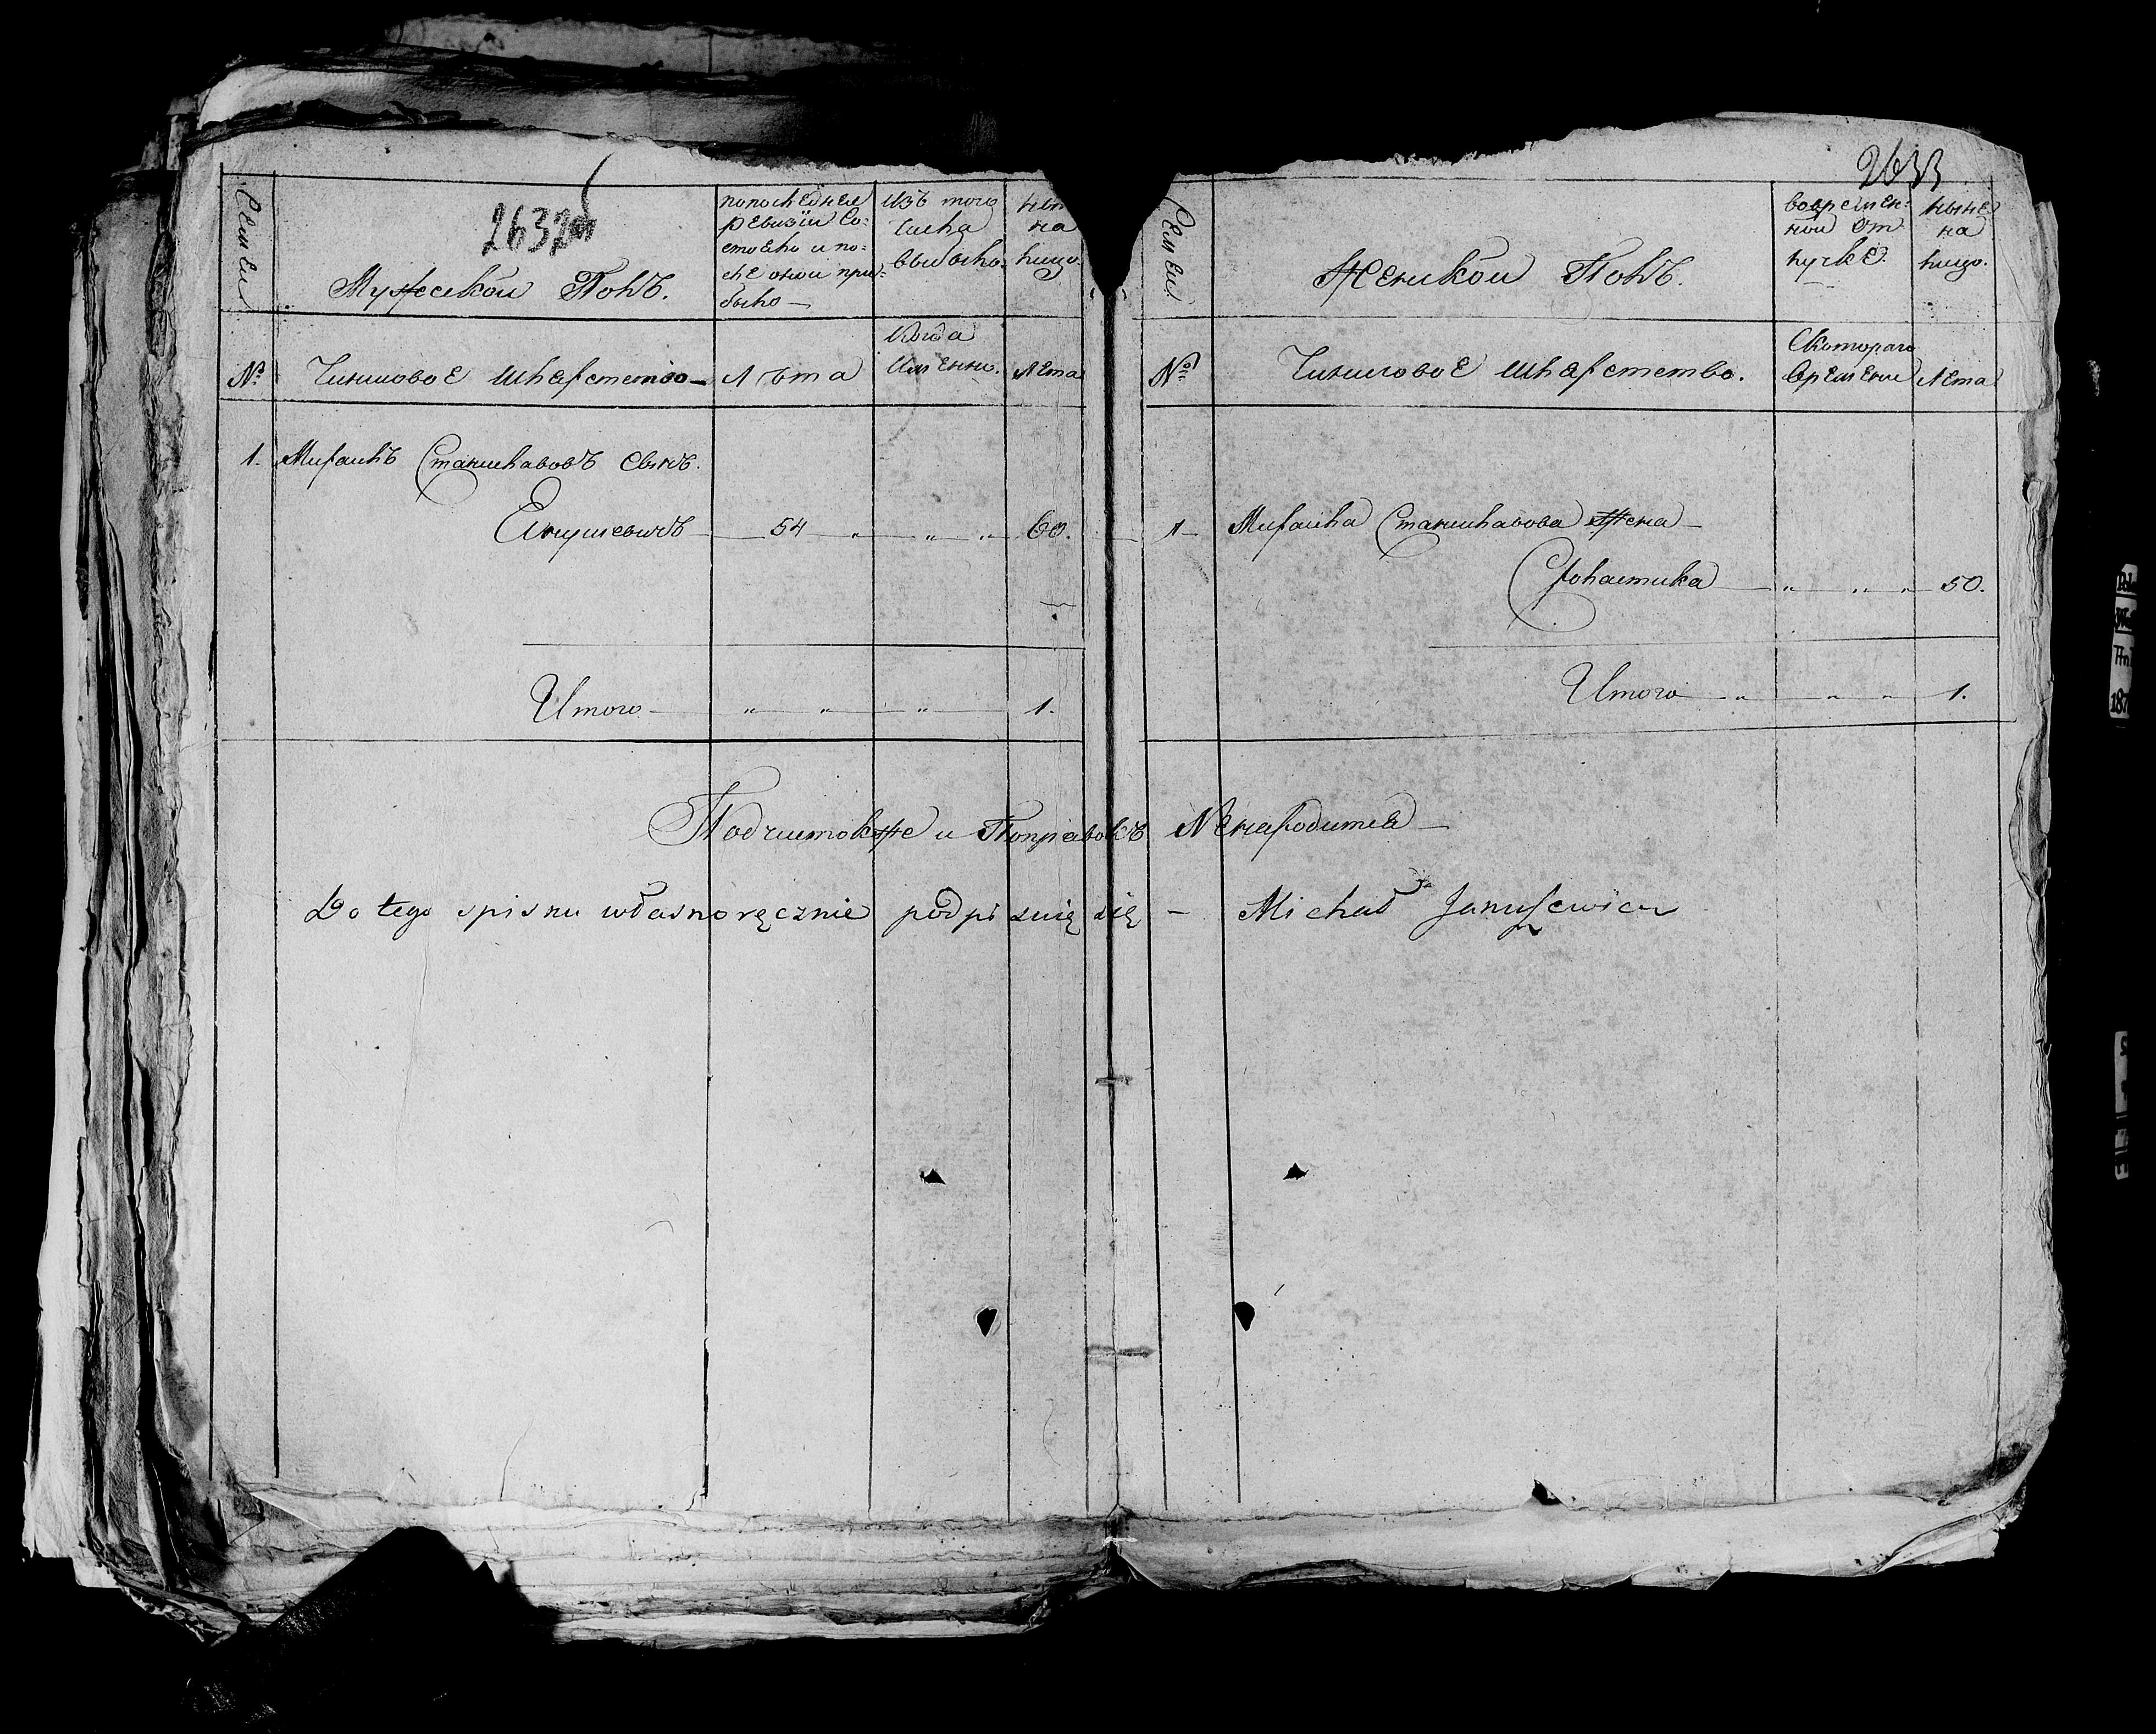 2632 об
Семеи
Мужескои Полъ.
попоследнеи
ревизïи Со-
стояло и по-
сле онои при-
было
Изъ того
числа
выбыло.
ныне
на
лицо.
№
Чиншовое шляхетство
Лѣта
Когда
Именно.
Лета
1. Михаилъ Станиславовъ Сынъ.
Янушевичъ 54 " " " 60.
Итого " " " 1.
2633
Семеи
Женскои Полъ.
вовремен-
нои От
лучке.
ныне
на
лицо.
№
Чиншовое шляхетство.
Скотораго
времени
Лета
1 Михаила Станиславова Жена
Схоластика " " " 50.
Итого " " " 1.
Подчистокже и Поправокъ Ненаходится
Do tego spisku własnoręcznie podpisuię się — Michał Januszewicz